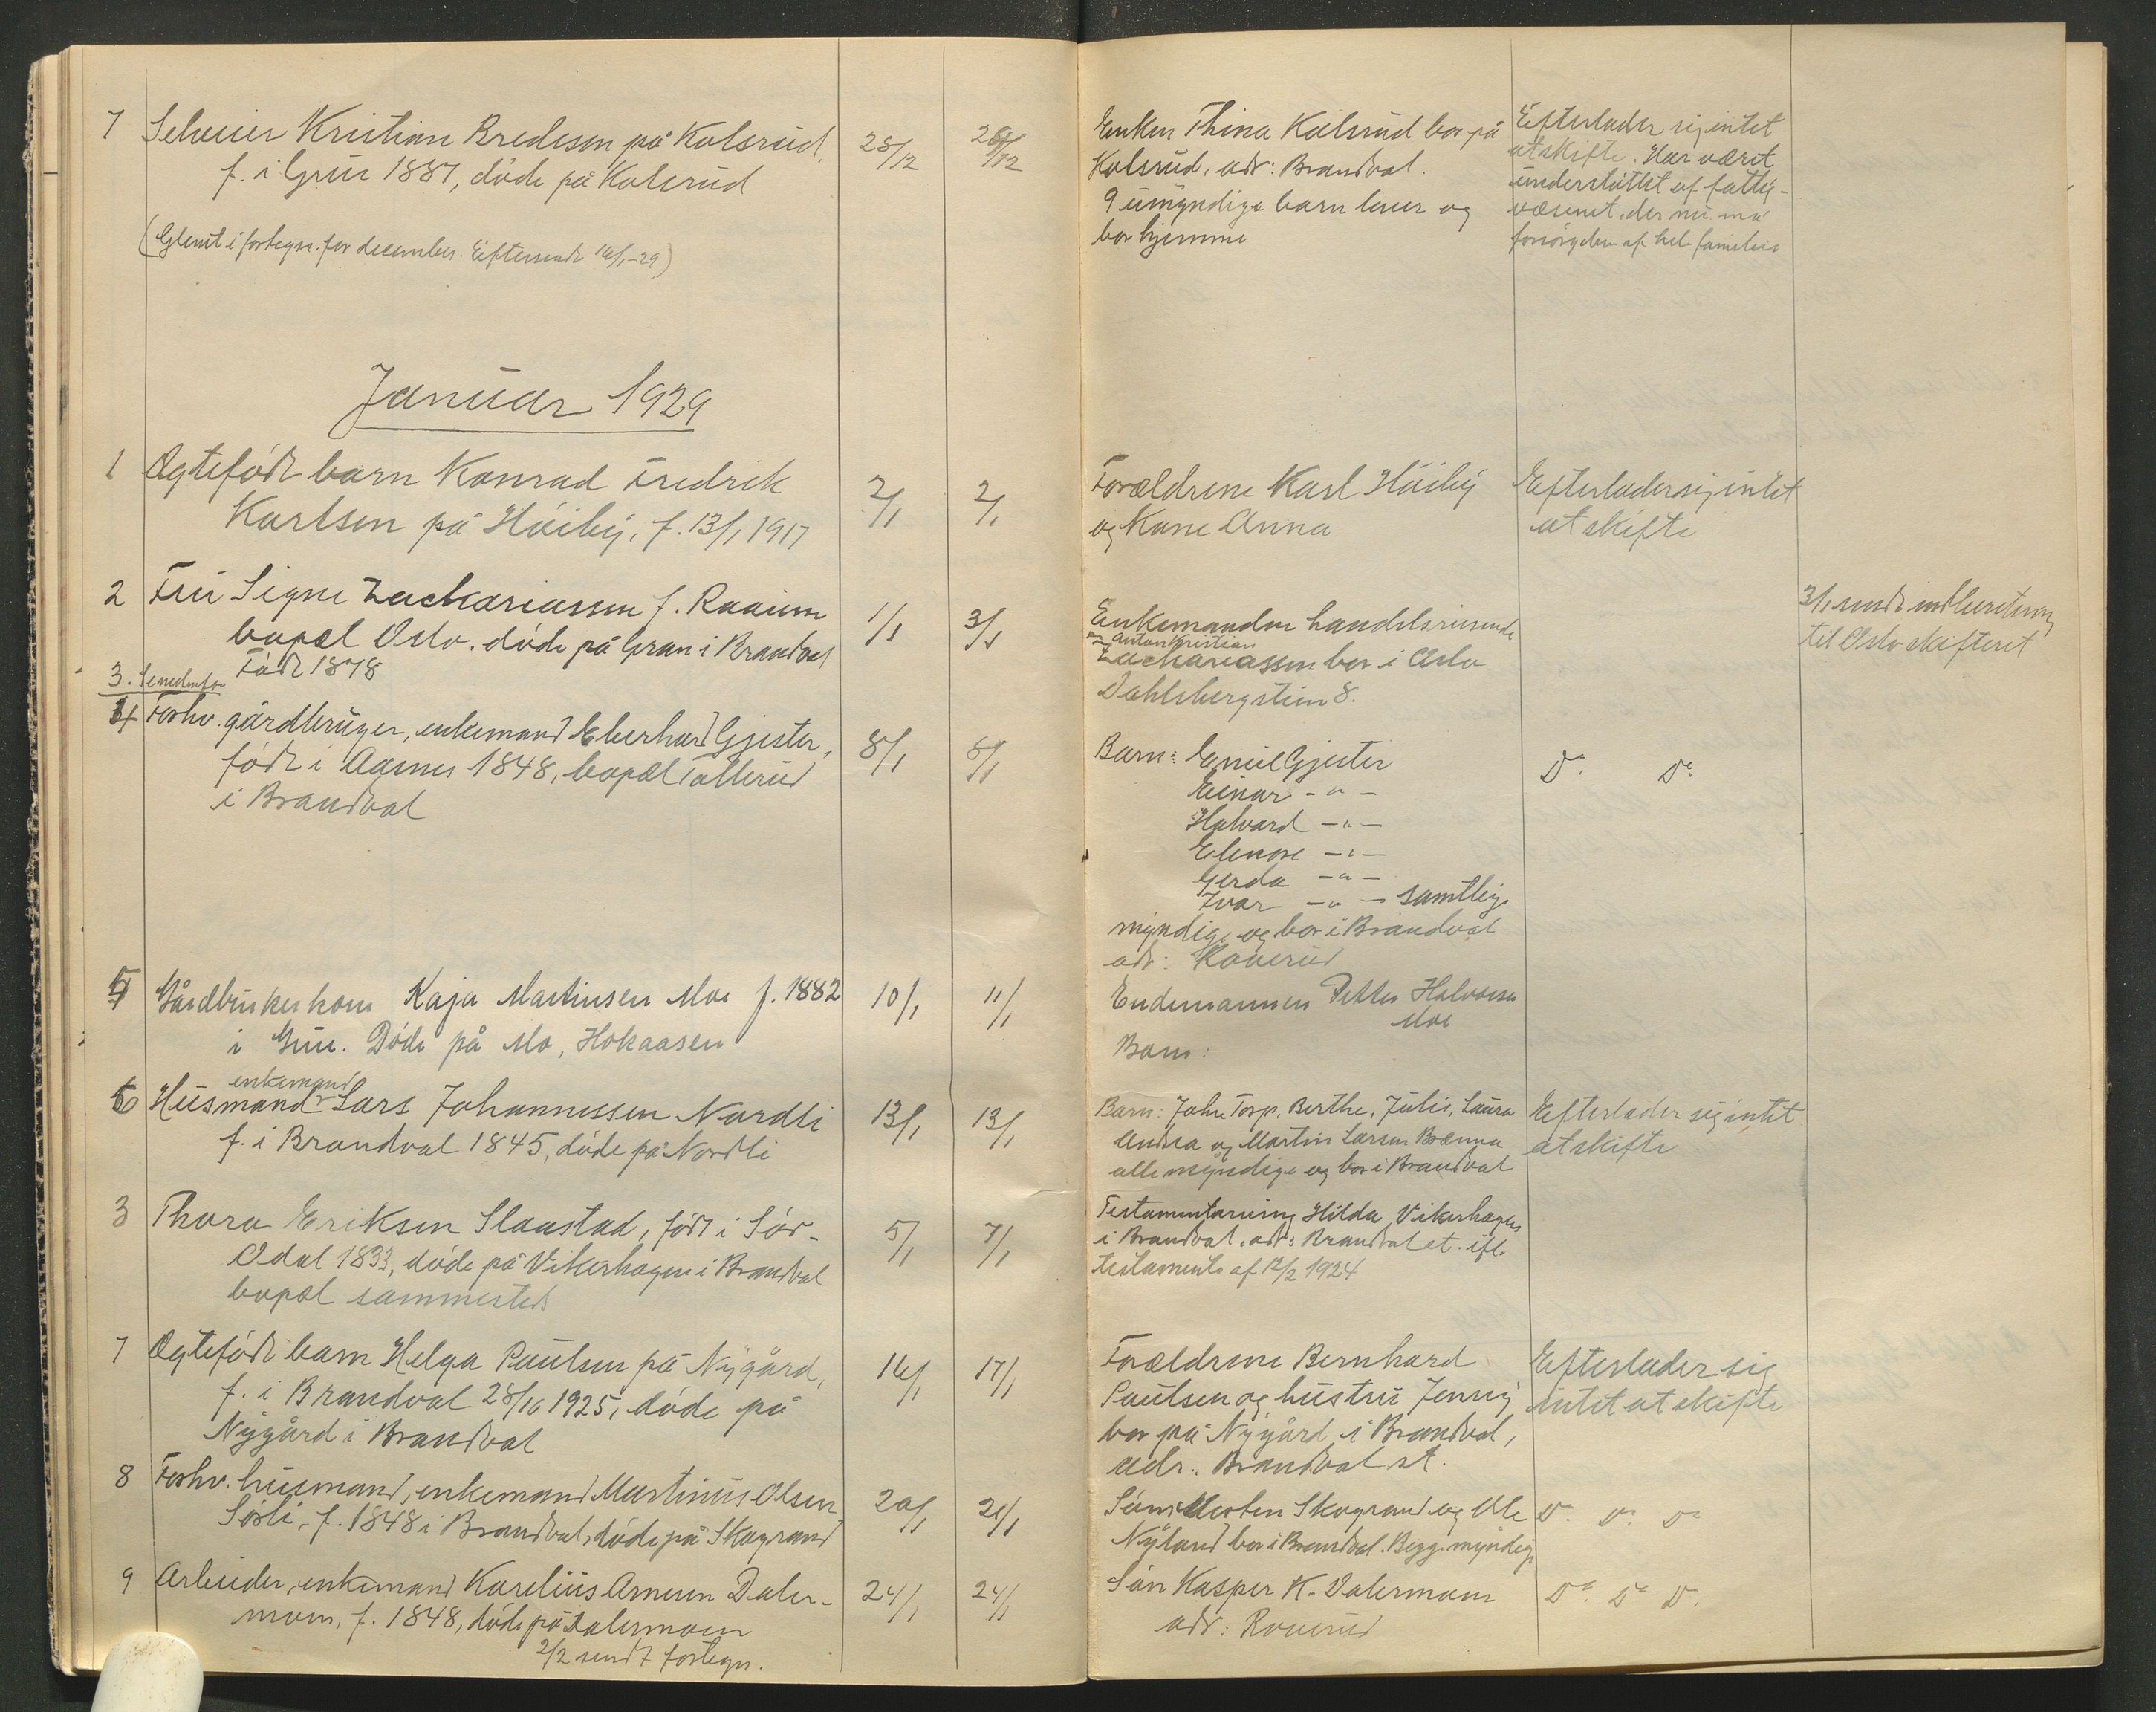 7 Selveier Kristian Bredesen på Kolsrud, 28/12 28/12
f. i Grue 1887, døde på Kolsrud
(Glemt i fortegn. for december. Eftersendt 16/1-29)
Enken Thina Kolsrud bor på
Kolsrud, adr: Brandval.
9 umyndige barn lever og
bor hjemme
Efterlader sig intet
at skifte. Har været
understøttet af fattig-
væsenet, der nu må
forsørgelsen af hele familien
Januar 1929
1 Ægtefødt barn Konrad Fredrik 2/1 2/1
Karlsen på Höiby, f. 13/1 1917
Forældrene Karl Höiby
og Kone Anna
Efterlader sig intet
at skifte
2 Fru Signe Zachariassen f. Raaum 1/1 3/1
bopæl Oslo. døde på Gran i Brandval
Født 1878
Enkemanden handelsreisende
Anton Kristian
Zachariassen bor i Oslo
Dahlsbergstien 8.
3/1 sendt indberetning
til Oslo skifteret
3. Se nedenfor
4 Forhv. gårdbruger, enkemand Eberhard Gjester, 8/1 8/1
født i Agnes 1848, bopæl Tallerud
i Brandval
Barn: Emil Gjester
Einar - " -
Halvard - " -
Elenore - " -
Gerda - " -
Ivar - " - samtlige
myndige og bor i Brandval
adr: Roverud
Do. Do.
5 Gårdbrukerkone Kaja Martinsen Moe f. 1882 10/1 11/1
i Grue. Döde på Mo, Hokaasen
Enkemannen Petter Halvorsen
Moe
Barn:
enkemand
6 Husmand Lars Johannessen Nordli 13/1 13/1
f. i Brandval 1845, døde på Nordli
Barn: John Torp, Berthe, Julis, Laura
Andrea og Martin Larsen Brænna
alle myndige og bor i Brandval
Efterlader sig intet
at skifte
3 Thora Eriksen Slaastad, født i Sör- 5/1 7/1
Odal 1833, døde på Vikerhagen i Brandval
bopæl sammesteds
Testamentarving Hilda Vikerhagen
i Brandval. adr: Brandval st. ifl.
testamente af 12/2 1924
7 Ægtefødt barn Helga Paulsen på Nygård, 16/1 17/1
f. i Brandval 28/10 1925, døde på
Nygård i Brandval
Forældrene Bernhard
Paulsen og hustru Jenny
bor på Nygård i Brandval,
adr.: Brandval st.
Efterlader sig
intet at skifte
8 Forhv. husmand, enkemand Martinius Olsen 20/1 21/1
Sörli, f. 1848 i Brandval, döde på Skogrand
Sönner Morten Skogrand og Ole
Nyland bor i Brandval. Begge myndige
Do. Do. Do
9 Arbeider, enkemand Karelius Arnesen Daler- 24/1 24/1
moen, f. 1848, døde på Dalermoen
Sön Kasper K. Dalermoen
adr: Roverud
Do. Do Do.
2/2 sendt fortegn.